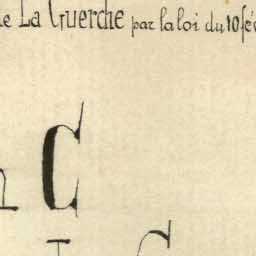 de La Guerche par la loi du 10 fé
C